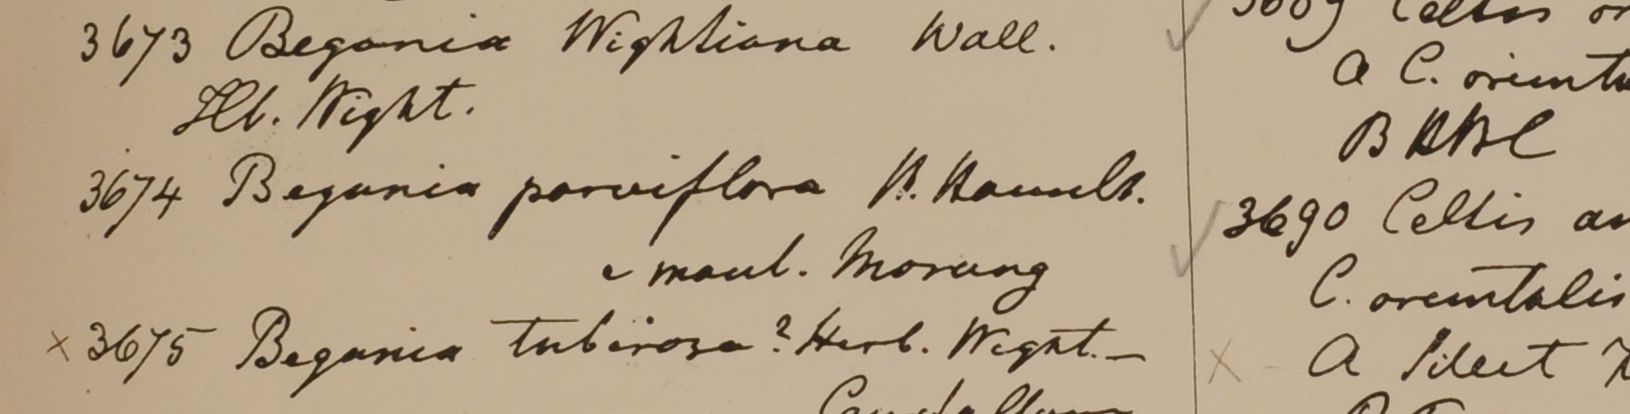 3673 Begonia Wightiana Wall.
Hb. Wight.
3674 Begonia parviflora H. Hamilt.
e mont. Morung
3675 Begonia tuberosa? Herb. Wight. —
3689 Celtis or
A C. orienta
B HBC
3690 Celtis
C. orientalis
A